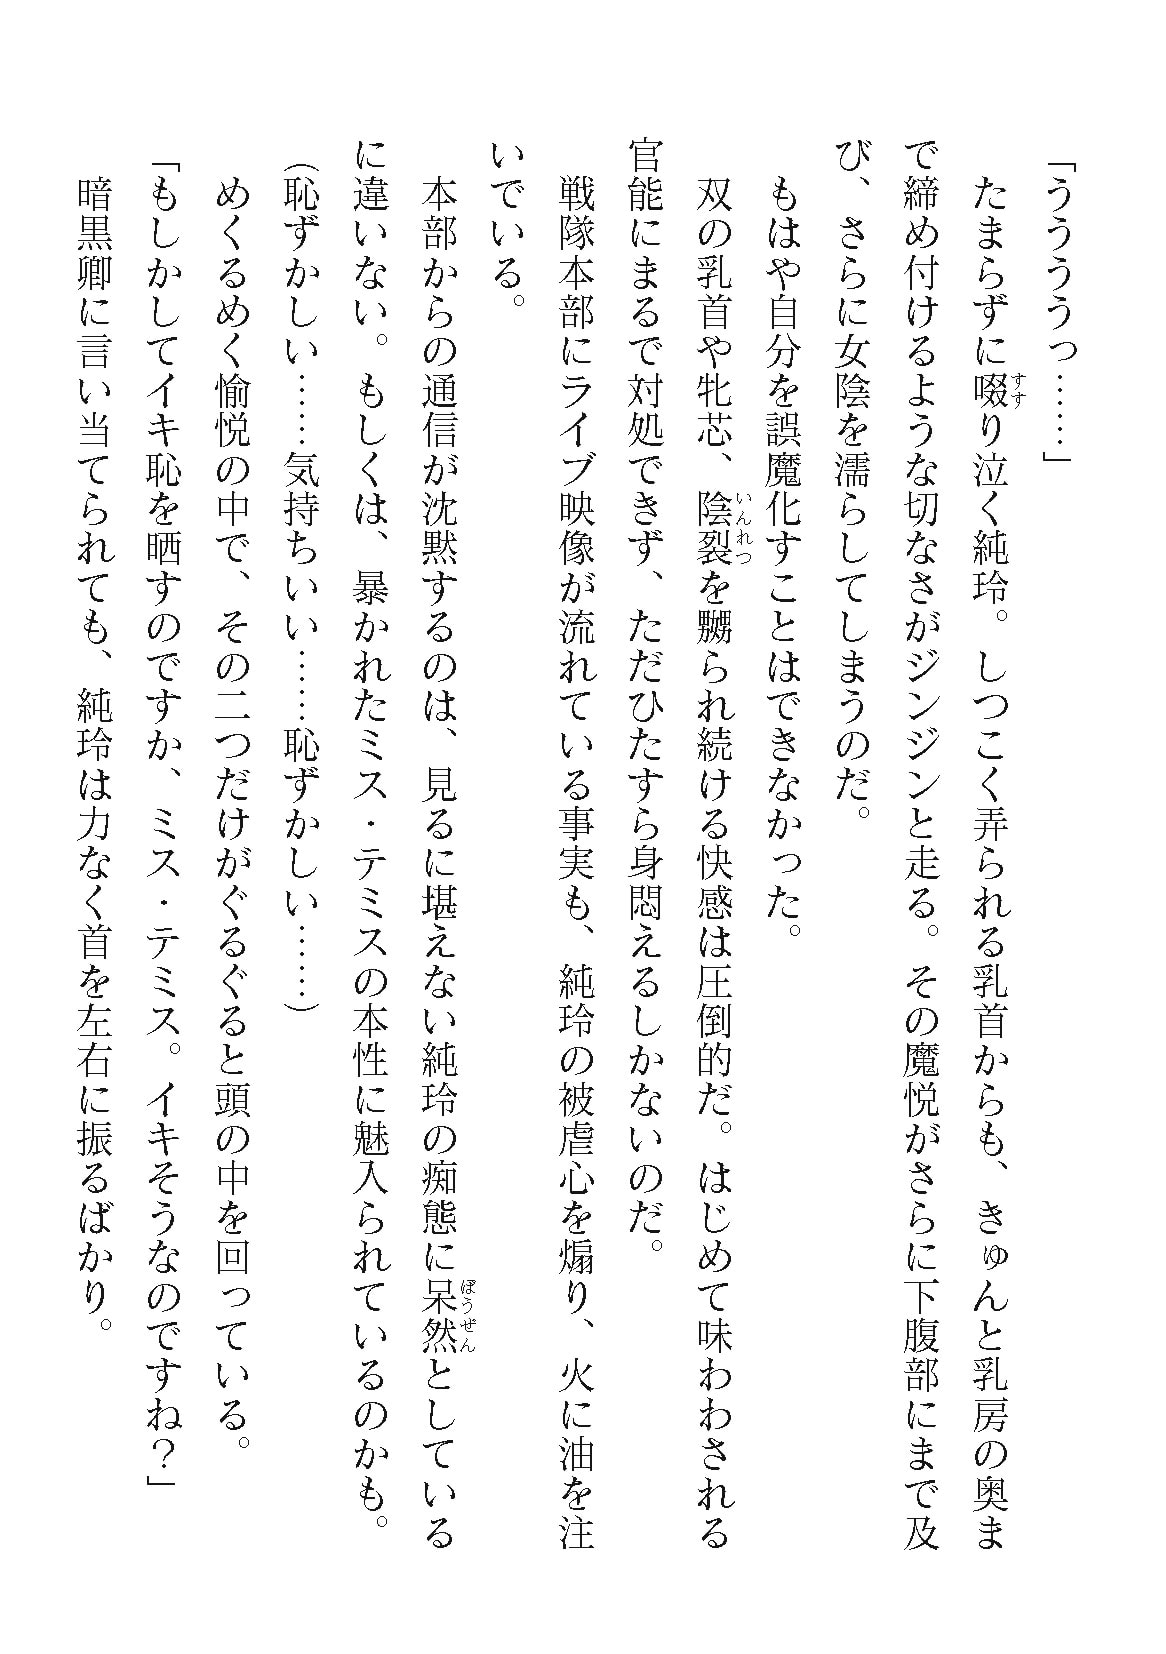 「うううううっ……」
　たまらずに啜り泣く純玲。しつこく弄られる乳首からも、きゅんと乳房の奥ま
で締め付けるような切なさがジンジンと走る。その魔悦がさらに下腹部にまで及
び、さらに女陰を濡らしてしまうのだ。
　もはや自分を誤魔化すことはできなかった。
　双の乳首や牝芯、陰裂を嬲られ続ける快感は圧倒的だ。はじめて味わわされる
官能にまるで対処できず、ただひたすら身悶えるしかないのだ。
　戦隊本部にライブ映像が流れている事実も、純玲の被虐心を煽り、火に油を注
いでいる。
　本部からの通信が沈黙するのは、見るに堪えない純玲の痴態に呆然としている
に違いない。もしくは、暴かれたミス・テミスの本性に魅入られているのかも。
（恥ずかしい……気持ちいい……恥ずかしい……）
　めくるめく愉悦の中で、その二つだけがぐるぐると頭の中を回っている。
「もしかしてイキ恥を晒すのですか、ミス・テミス。イキそうなのですね？」
　暗黒卿に言い当てられても、純玲は力なく首を左右に振るばかり。